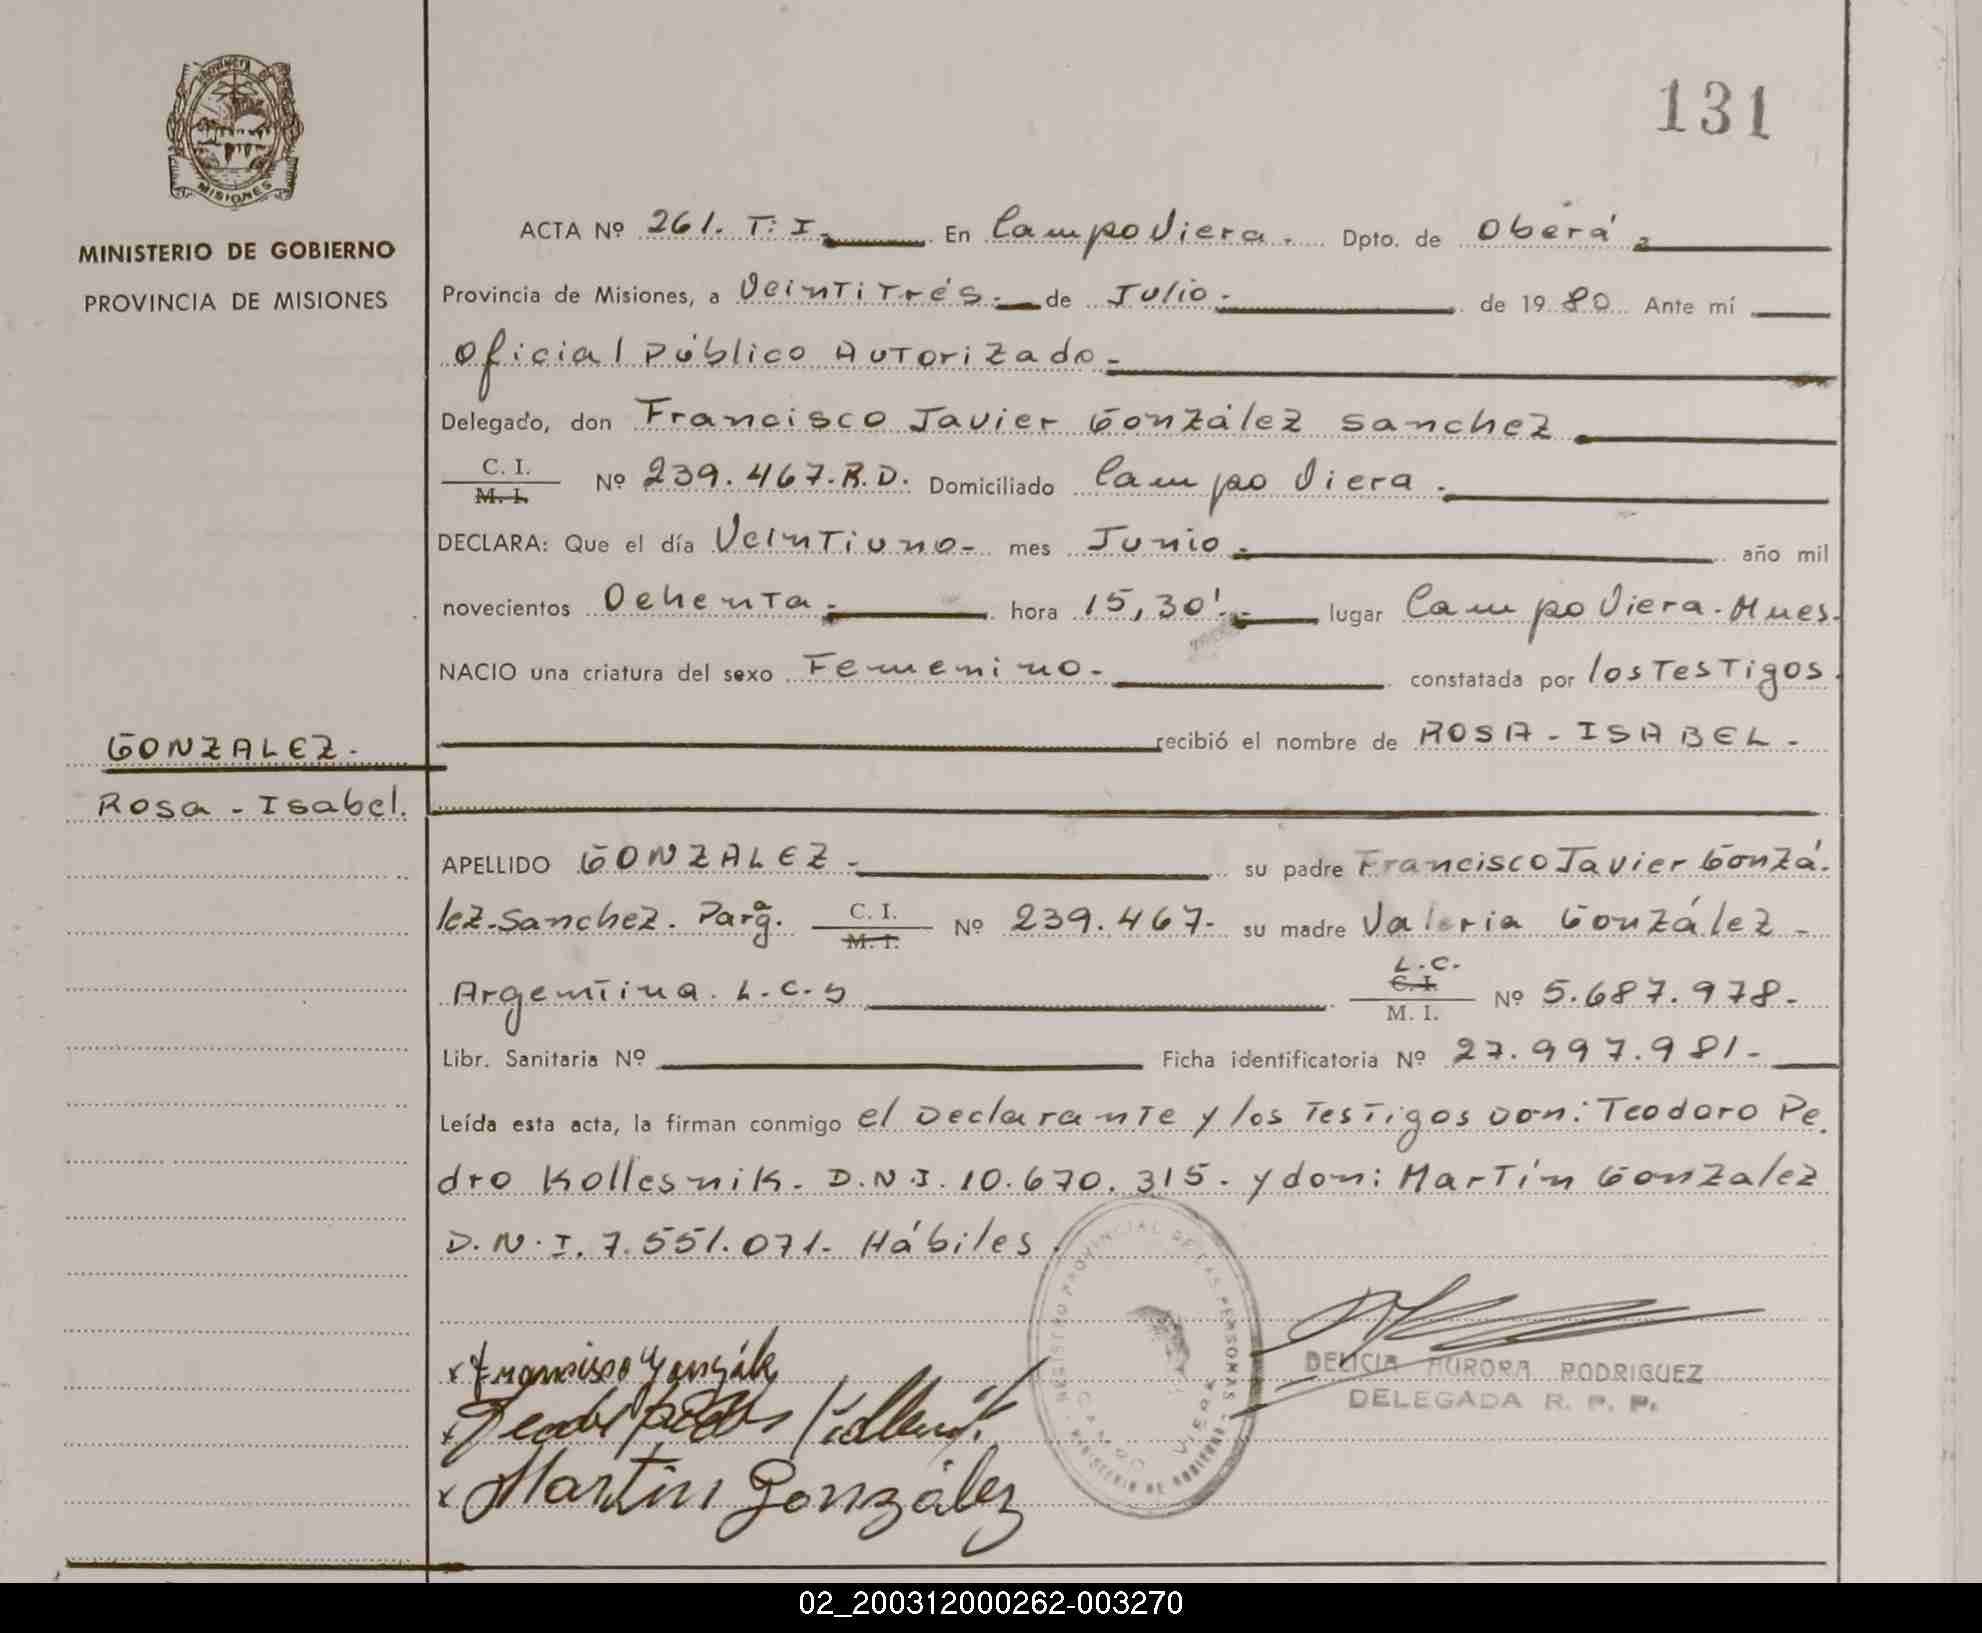 131
PROVINCIA DE
MISIONES
MINISTERIO DE GOBIERNO
PROVINCIA DE MISIONES
ACTA Nº 261. T: I. En Campo Viera. Dpto. de Oberá.
Provincia de Misiones, a Veintitrés. de Julio. de 1980 Ante mí
Oficial Público Autorizado.
Delegado, don Francisco Javier González Sanchez
C. I.
M. I. Nº 239.467.R.D. Domiciliado Campo Viera.
DECLARA: Que el día Veintiuno- mes Junio. año mil
novecientos Ochenta. hora 15,30'. lugar Campo Viera. Mnes.
NACIO una criatura del sexo Femenino- constatada por los Testigos.
GONZALEZ.
recibió el nombre de ROSA - ISABEL -
Rosa - Isabel.
APELLIDO GONZALEZ - su padre Francisco Javier Gonzá.
lez-Sanchez. Parag. C. I. M. I. Nº 239.467- su madre Valeria González -
Argentina. L.C. L.C.
C. I.
M. I. Nº 5.687.978-
Libr. Sanitaria Nº Ficha identificatoria Nº 27.997.981-
Leída esta acta, la firman conmigo el Declarante y los Testigos Don: Teodoro Pe.
dro Kollesnik. D.N.I. 10.670.315. y don: Martín Gonzalez
D.N.I. 7.551.071. Hábiles.
x Francisco Gonzále
x
x Martin González
REGISTRO PROVINCIAL DE LAS PERSONAS
CAMPO VIERA
MINISTERIO DE GOBIERNO
DELICIA AURORA RODRIGUEZ
DELEGADA R. P. P.
02_200312000262-003270